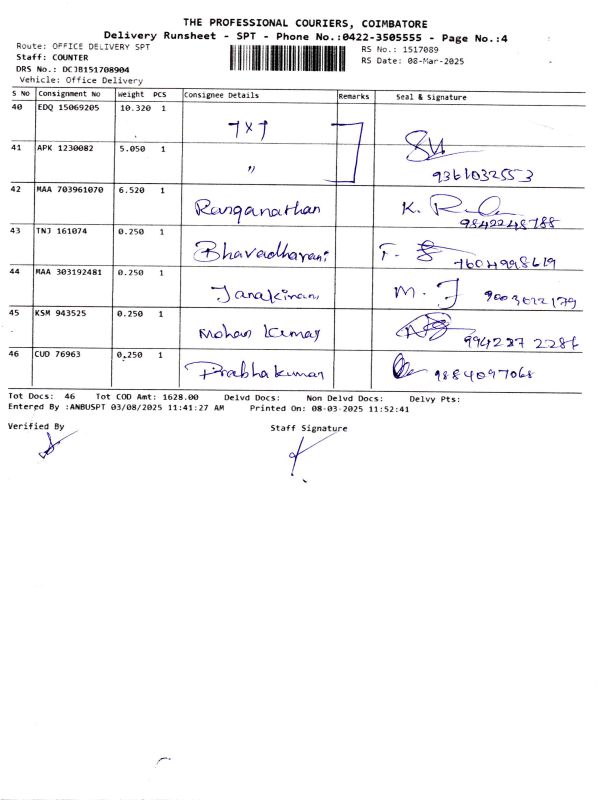 THE PROFESSIONAL COURIERS, COIMBATORE
Delivery Runsheet - SPT - Phone No.:0422-3505555 - Page No.:4
Route: OFFICE DELIVERY SPT
RS No.: 1517089
Staff: COUNTER
RS Date: 08-Mar-2025
DRS No.: DCJB151708904
Vehicle: Office Delivery
S No Consignment No Weight PCS Consignee Details Remarks Seal & Signature
40 EDQ 15069205 10.320 1
TXT
41 APK 1230082 5.050 1
" 9361032553
42 MAA 703961070 6.520 1
Ranganathan K. 9842248788
43 TNJ 161074 0.250 1
Bhavadharani F. 7604998619
44 MAA 303192481 0.250 1
Janakiraman M. J 9003022179
45 KSM 943525 0.250 1
Mohan Kumar 994287 2286
46 CUD 76963 0.250 1
Prabhakumar 9884097068
Tot Docs: 46 Tot COD Amt: 1628.00 Delvd Docs: Non Delvd Docs: Delvy Pts:
Entered By :ANBUSPT 03/08/2025 11:41:27 AM Printed On: 08-03-2025 11:52:41
Verified By Staff Signature